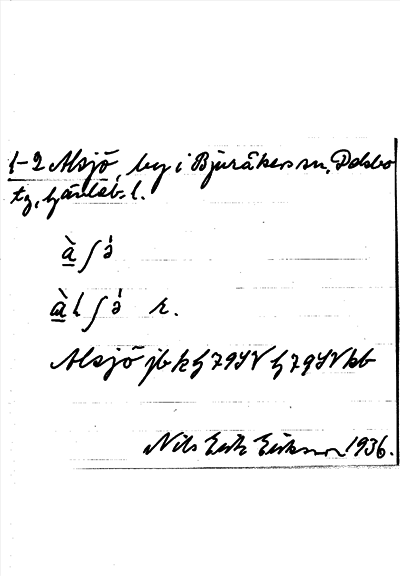 1-2 Alsjö, by i Bjuråkers sn, Delsbo
tg, Gävleb. l.
à ʃ ə̀
à l ʃ ə̀ r.
Alsjö jb k
Nils Erik Eriksson 1936.